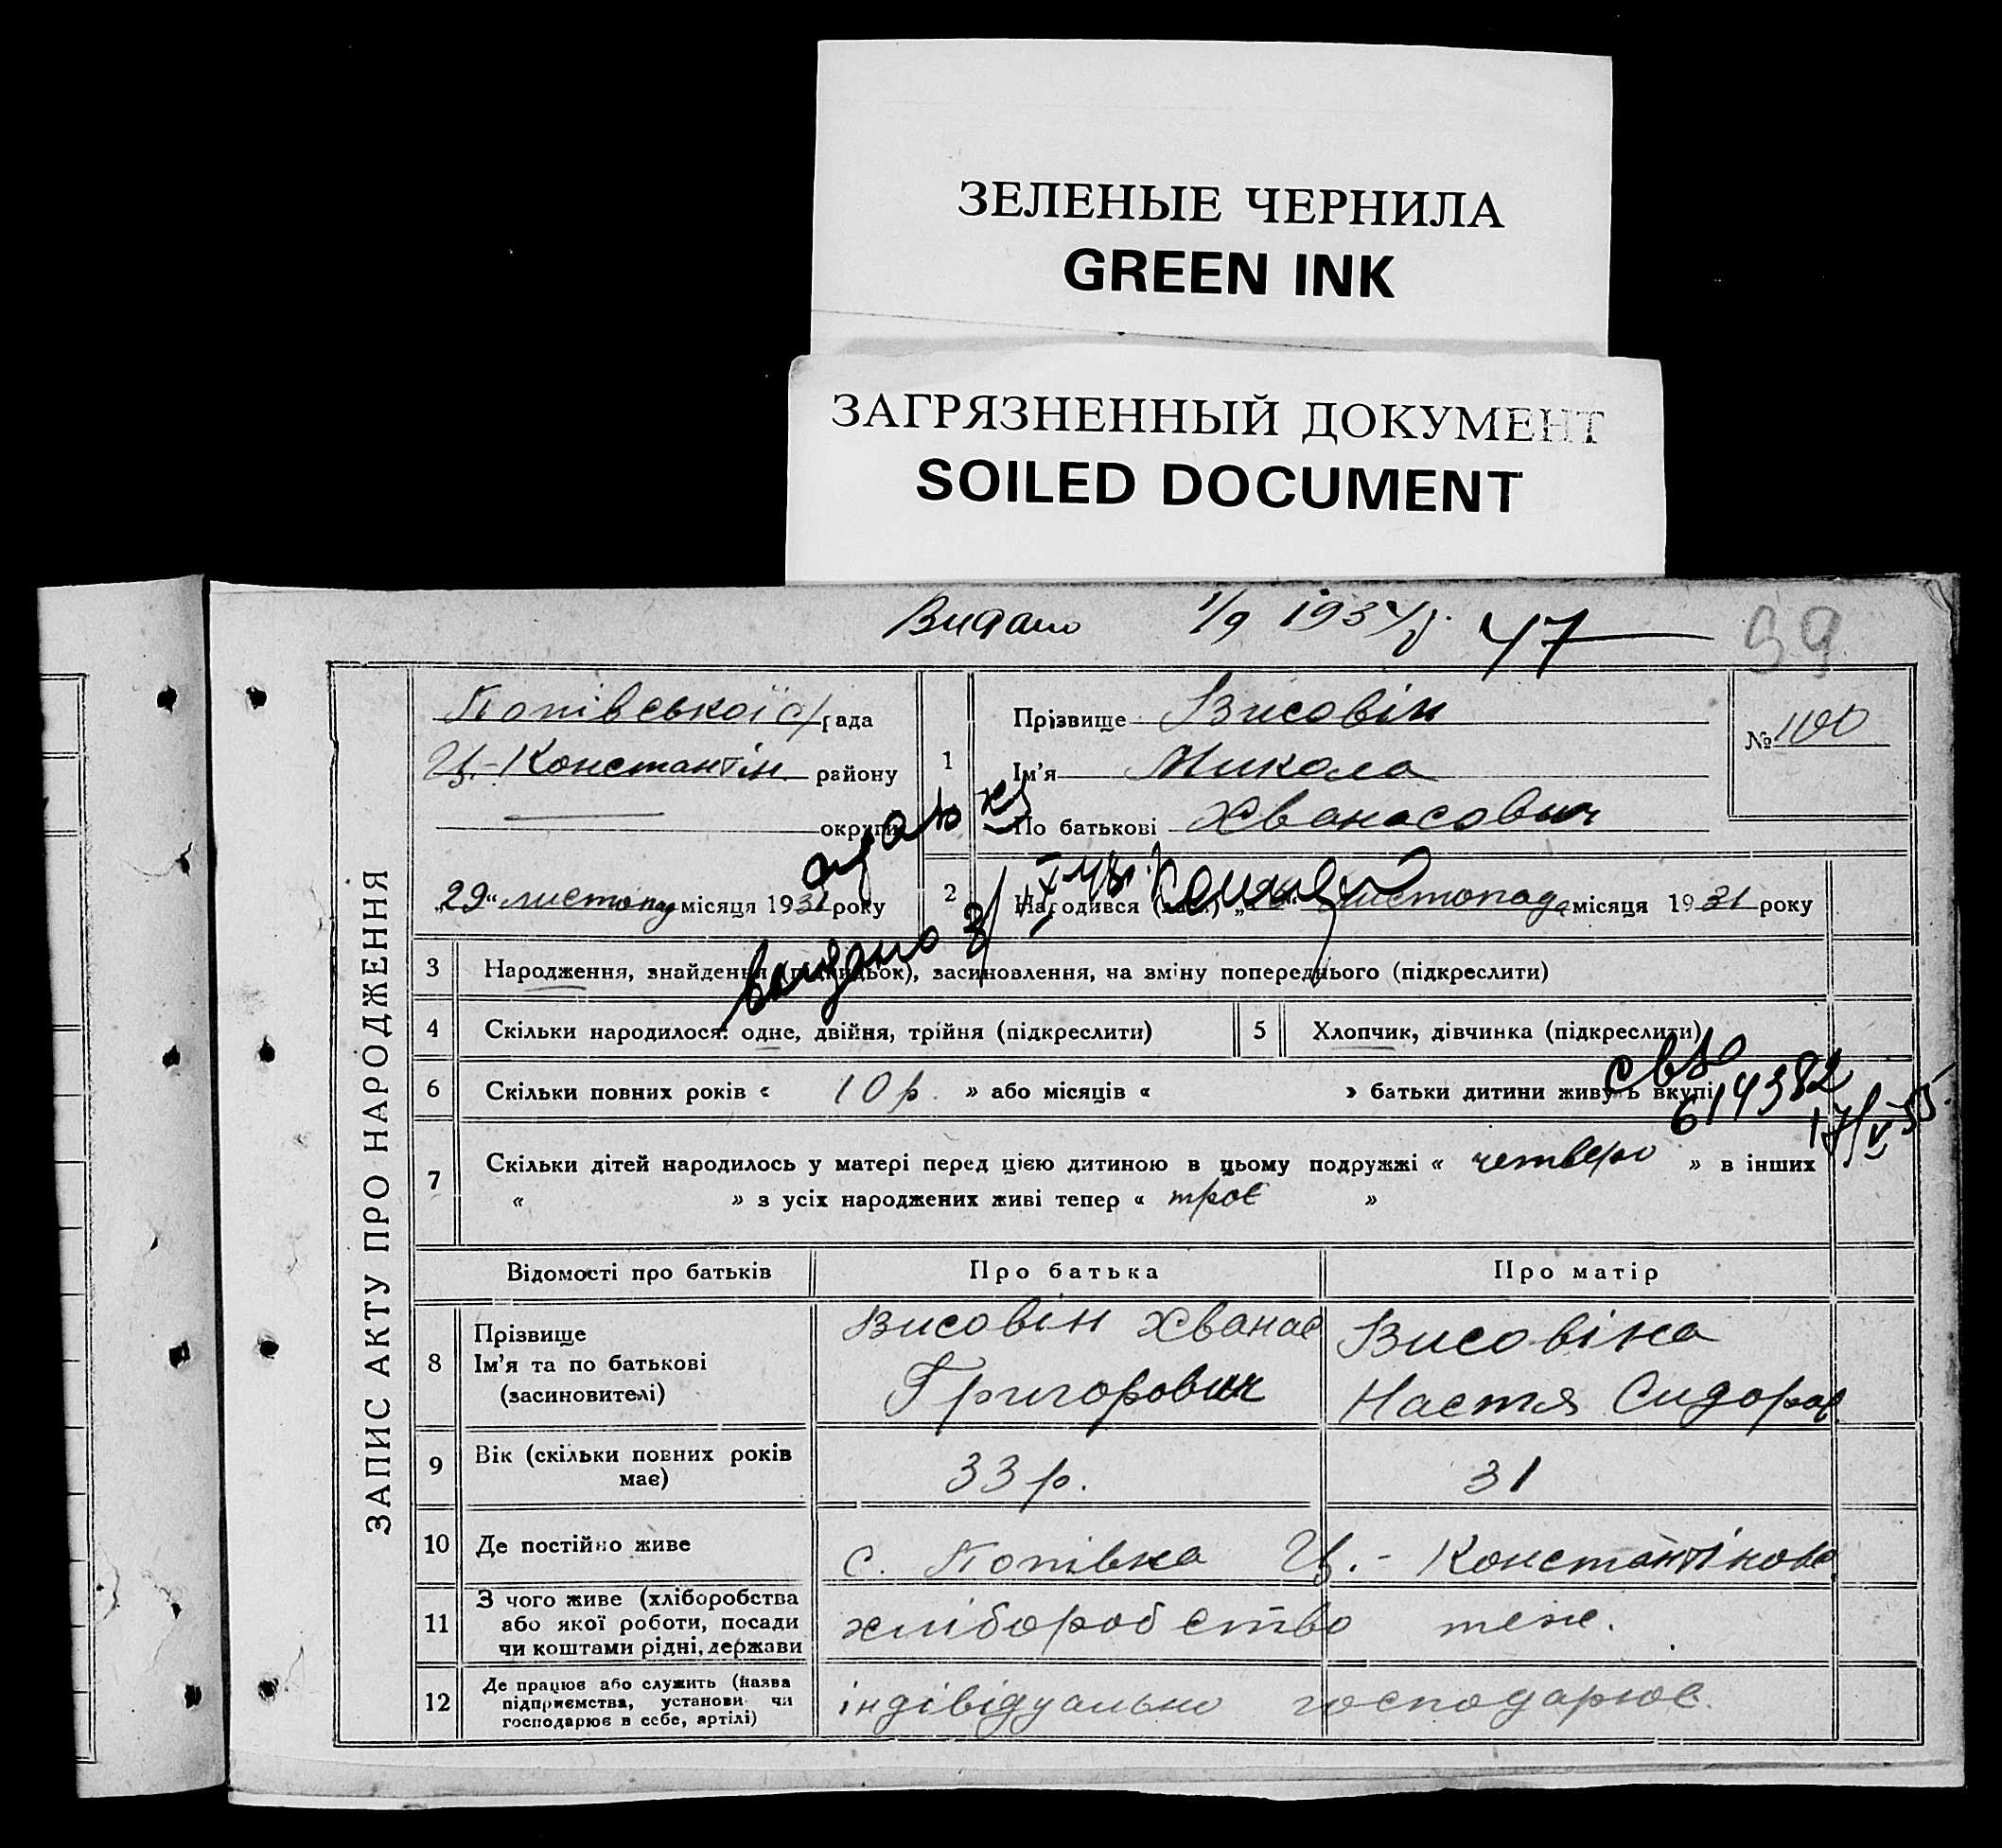 ЗЕЛЕНЫЕ ЧЕРНИЛА
GREEN INK
ЗАГРЯЗНЕННЫЙ ДОКУМЕНТ
SOILED DOCUMENT
Видано 1/9 1934 р. 47 99
ЗАПИС АКТУ ПРО НАРОДЖЕННЯ
Попівської с/рада
Ц.-Константін. району
округи
„29“ листопад місяця 1931 року
1 Прізвище Висовін
Ім'я Микола
По батькові Хванасович
№ 100
2 Народився листопада місяця 1931 року
видано
3 Народження, знайдення (підкидьок), засиновлення, на зміну попереднього (підкреслити)
4 Скільки народилося: одне, двійня, трійня (підкреслити) 5 Хлопчик, дівчинка (підкреслити)
св во
614382
17/V-55
6 Скільки повних років « 10 р. » або місяців « » батьки дитини живуть вкупі
7 Скільки дітей народилось у матері перед цією дитиною в цьому подружжі « четверо » в інших
« » з усіх народжених живі тепер « троє »
Відомості про батьків Про батька Про матір
8 Прізвище
Ім'я та по батькові
(засиновителі)
Висовін Хванас
Григорович
Висовіна
Настя Сидоров
9 Вік (скільки повних років
має)
33 р. 31
10 Де постійно живе с. Попівка Ц.- Константінова
11 З чого живе (хліборобства
або якої роботи, посади
чи коштами рідні, держави
хліборобство теж.
12 Де працює або служить (назва
підприємства, установи чи
господарює в себе, артілі)
індівідуально господарює.